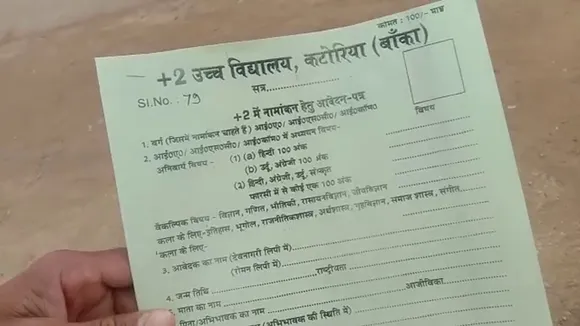 कीमत : 100/- मात्र
+2 उच्च विद्यालय, कटोरिया (बाँका)
सत्र..............
Sl.No. : 79
+2 में नामांकन हेतु आवेदन-पत्र
1. वर्ग (जिसमें नामांकन चाहते हैं) आई०ए०/ आई०एस०सी०/ आई०कॉम०
2. आई०ए०/ आई०एस०सी०/ आई०कॉम० में अध्ययन विषय-
विषय
अनिवार्य विषय - (1) (a) हिन्दी 100 अंक
(b) उर्दू, अंग्रेजी 100 अंक
(2) हिन्दी, अंग्रेजी, उर्दू, संस्कृत
फारसी में से कोई एक 100 अंक
वैकल्पिक विषय - विज्ञान, गणित, भौतिकी, रासायनविज्ञान, जीवविज्ञान
कला के लिए-इतिहास, भूगोल, राजनीतिकशास्त्र, अर्थशास्त्र, गृहविज्ञान, समाज शास्त्र, संगीत.....
'कला के लिए-
3. आवेदक का नाम (देवनागरी लिपी में)..............
(रोमन लिपी में)..............
4. जन्म तिथि..............राष्ट्रीयता..............
माता का नाम..............आजीविका..............
पिता/अभिभावक का नाम..............
(अभिभावक की स्थिति में)